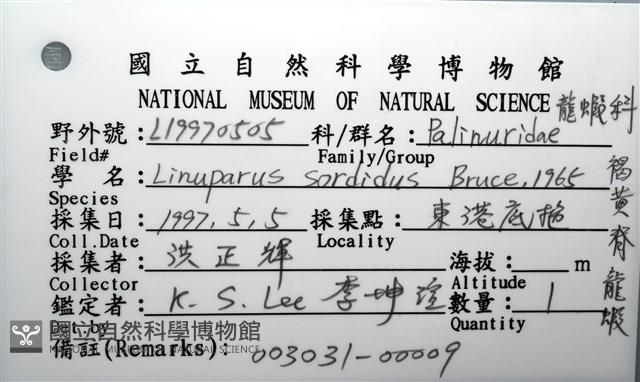 國立自然科學博物館
NATIONAL MUSEUM OF NATURAL SCIENCE 龍蝦科
野外號：L19970505 科/群名：Palinuridae
Field# Family/Group
學 名：Linuparus sordidus Bruce, 1965
Species
採集日：1997, 5, 5 採集點：東港底拖
Coll.Date Locality
採集者：洪正輝 海拔：m
Collector Altitude
鑑定者：K. S. Lee 李坤瑄 數量：1
Det.by Quantity
國立自然科學博物館
NATIONAL MUSEUM OF NATURAL SCIENCE
備註(Remarks)：003031-00009
褐黃脊龍蝦